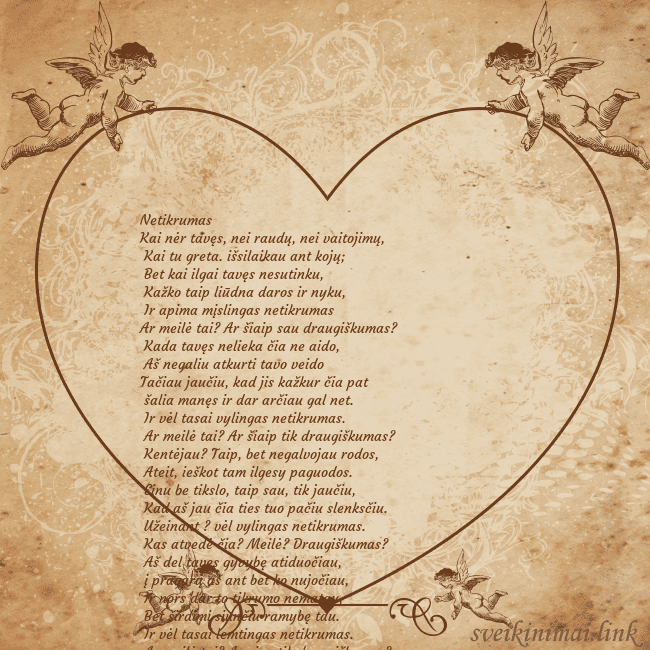 Netikrumas
Kai nėr tavęs, nei raudų, nei vaitojimų,
Kai tu greta. išsilaikau ant kojų;
Bet kai ilgai tavęs nesutinku,
Kažko taip liūdna daros ir nyku,
Ir apima mįslingas netikrumas
Ar meilė tai? Ar šiaip sau draugiškumas?
Kada tavęs nelieka čia ne aido,
Aš negaliu atkurti tavo veido
Tačiau jaučiu, kad jis kažkur čia pat
šalia manęs ir dar arčiau gal net.
Ir vėl tasai vylingas netikrumas.
Ar meilė tai? Ar šiaip tik draugiškumas?
Kentėjau? Taip, bet negalvojau rodos,
Ateit, ieškot tam ilgesy paguodos.
Einu be tikslo, taip sau, tik jaučiu,
Kad aš jau čia ties tuo pačiu slenksčiu.
Užeinant ? vėl vylingas netikrumas.
Kas atvedė čia? Meilė? Draugiškumas?
Aš dėl tavęs gyvybę atiduočiau,
į pragarą aš ant bet ko nujočiau,
Ir nors dar to tikrumo nematau,
Bet širdimi siunčiu ramybę tau.
Ir vėl tasai lemtingas netikrumas.
sveikinimai.link